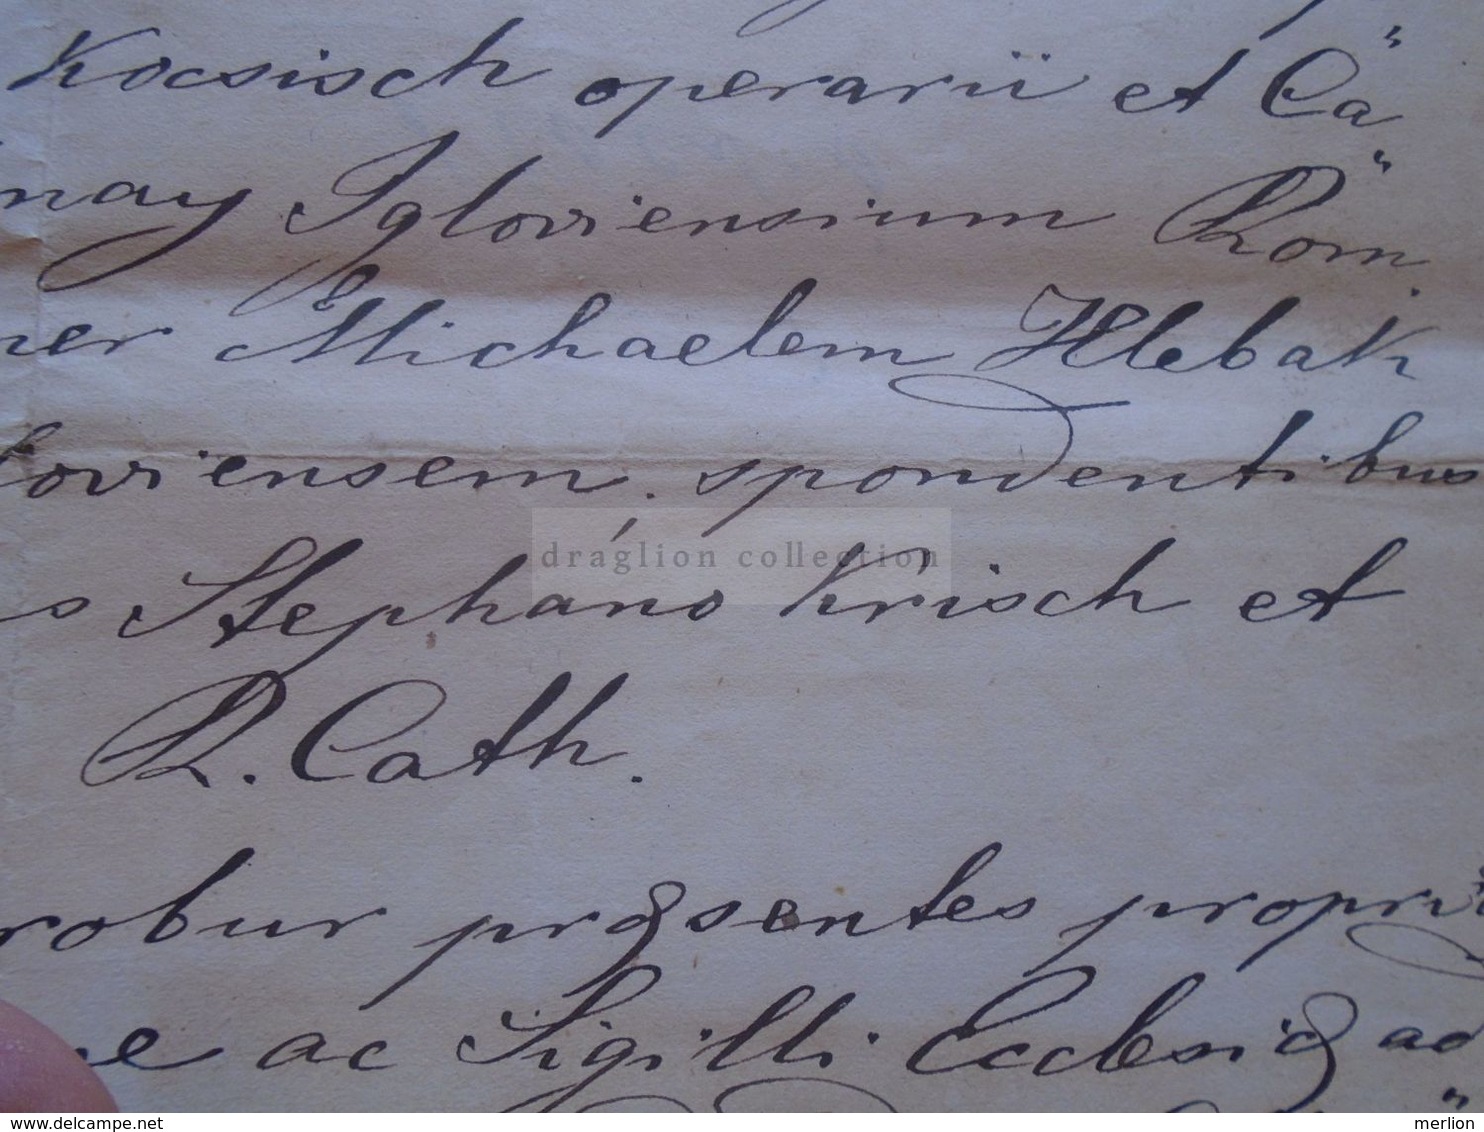 Kocsisch operarii et Ca"
nay Igloviensium Rom."
ner Michaelem Hlebak
loviensem. spondentibus
s Stepháno Krisch et
R. Cath.
robur præsentes propri
e ac Sigilli Ecclesiæ ad
dráglion collection
www.delcampe.net
merlion